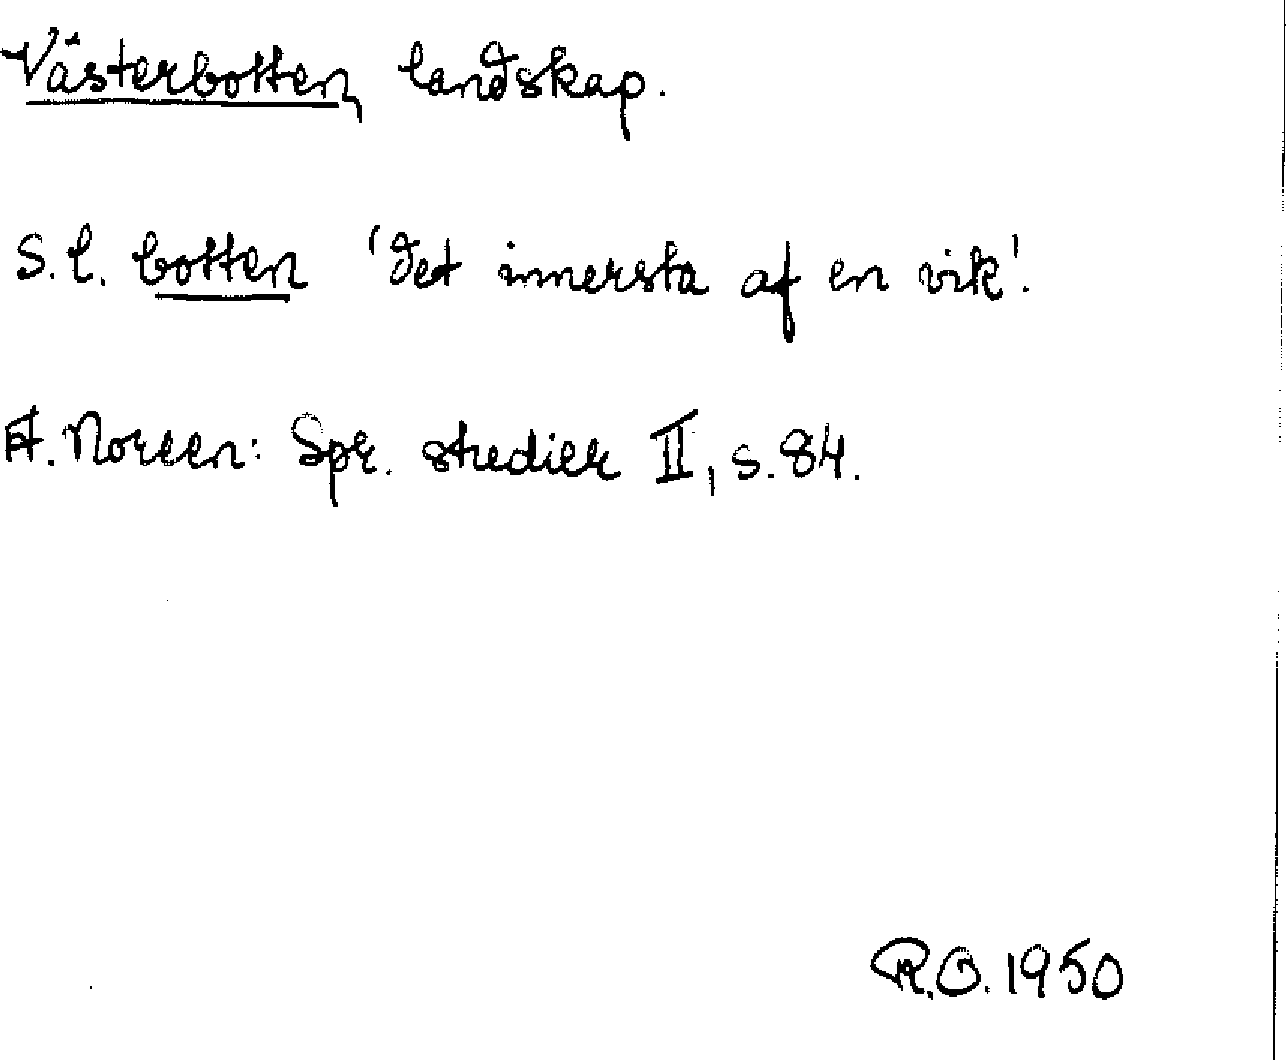 Västerbotten, landskap.
S.l. botten 'det innersta af en vik'.
A. Noreen: Spr. studier II, s. 84.
R.O. 1950